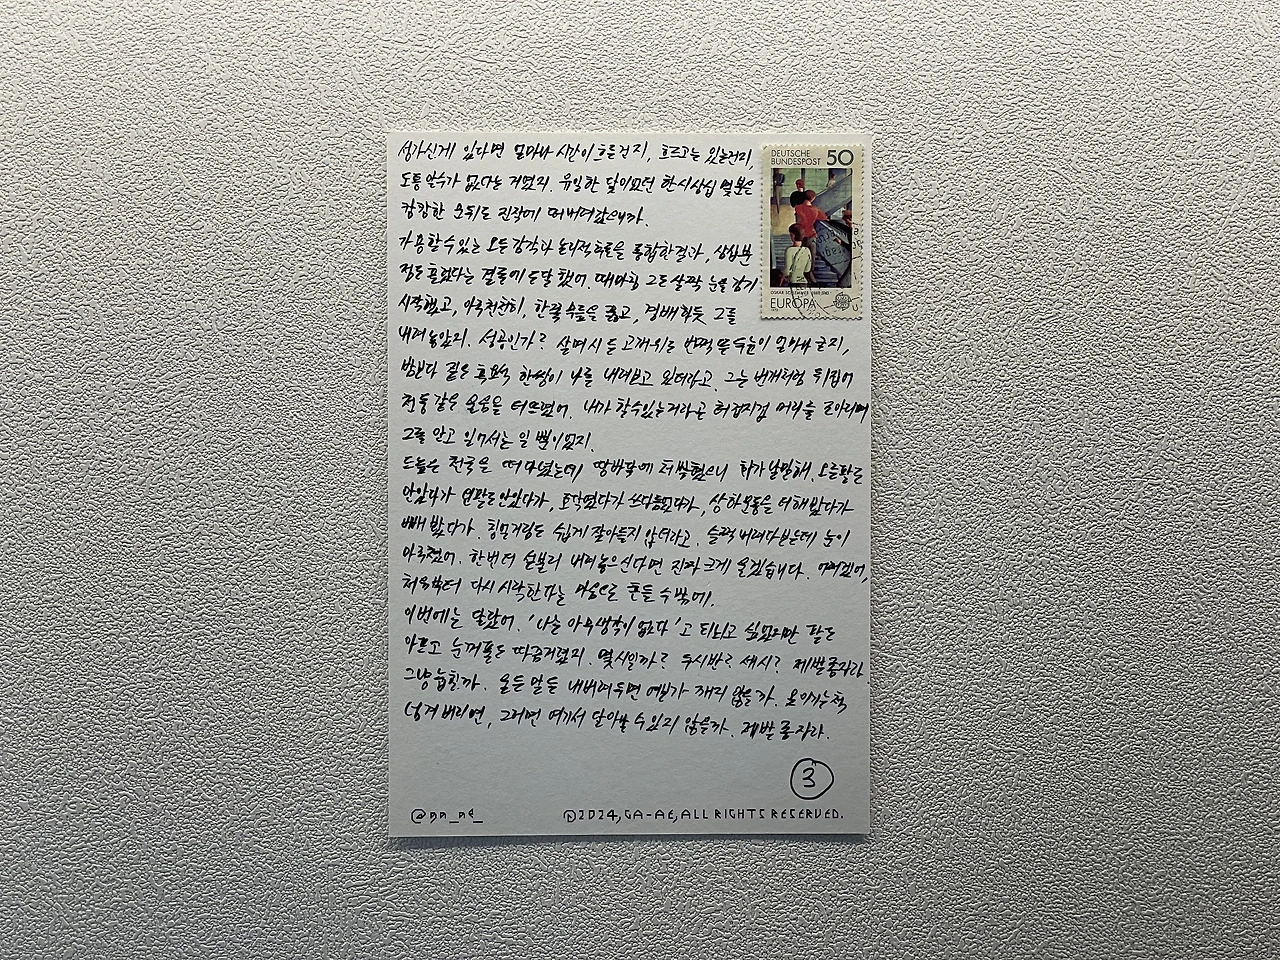 성가신게 있다면 얼마나 시간이 흐른건지, 흐르고는 있는건지,
도통 알수가 없다는 거였지. 유일한 빛이었던 한시상십 몇분은
캄캄한 눈뒤로 진작에 떠나버렸으니까.
가용할수있는 모든감각과 논리적추론을 통합한결과, 삼십분
정도 흘렀다는 결론에 도달했어. 때마침 그도 살짝 눈을 감기
시작했고, 아주천천히, 한쪽 무릎을 꿇고, 경배하듯 그를
내려놓았지. 성공인가? 살며시 든 고개위로 번쩍 뜬 두눈이 얼마나 큰지,
밤보다 짙은 흑요석 한쌍이 나를 내려보고 있더라고. 그는 번개처럼 뒤집어
천둥같은 울음을 터뜨렸어. 내가 할수있는거라곤 허겁지겁 머리를 조아리며
그를 안고 일어서는 일 뿐이었지.
드넓은 전국을 떠다녔는데 땅바닥에 처박혔으니 화가날만해. 오른팔로
안았다가 왼팔로안았다가, 토닥였다가 쓰다듬었다가, 상하운동을 더해봤다가
빼봤다가. 칭얼거림도 쉽게 잦아들지 않더라고. 슬쩍 내려다보는데 눈이
마주쳤어. 한번더 섣불리 내려놓으신다면 진짜크게 울겠습니다. 어쩌겠어,
처음부터 다시 시작한다는 마음으로 흔들 수밖에.
이번에는 달랐어. '나는 아무생각이 없다'고 되뇌고 싶었지만 팔도
아프고 눈꺼풀도 따끔거렸지. 몇시일까? 두시반? 세시? 제발좀자라
그냥 눕힐까. 울든 말든 내버려두면 여보가 깨지 않을까. 못이기는척
넘겨 버리면, 그러면 여기서 달아날 수 있지 않을까. 제발좀자라.
3
@nn_ne_
©2024, GA-AE, ALL RIGHTS RESERVED.
DEUTSCHE
BUNDESPOST 50
OSKAR SCHLEMMER 1888-1943
EUROPA